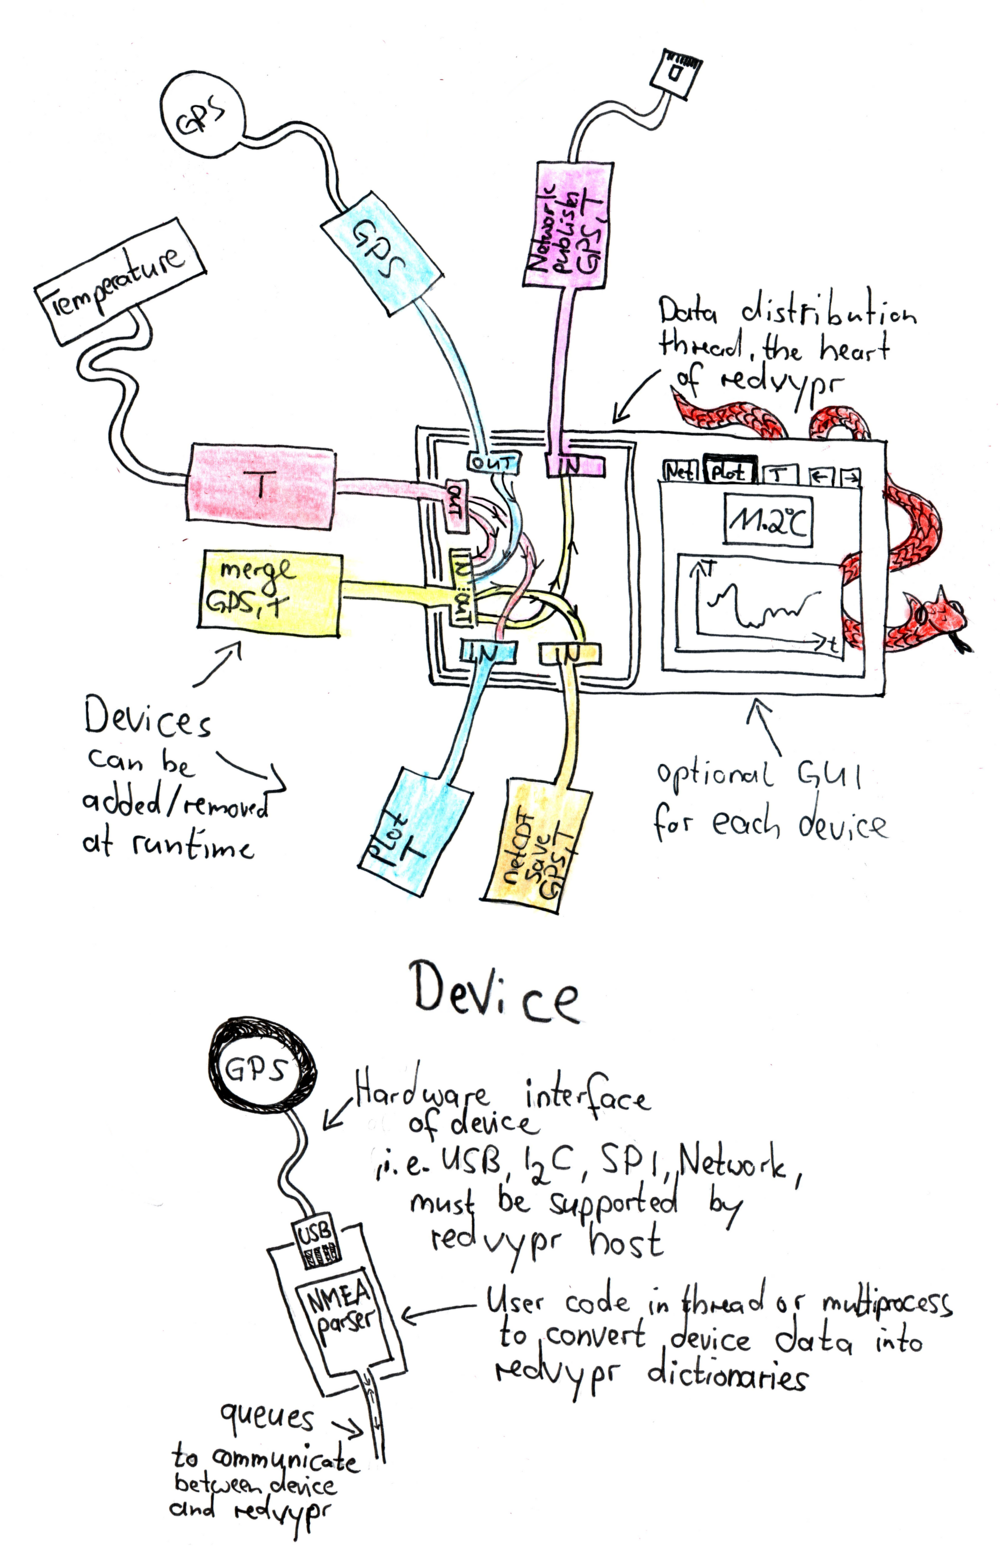 GPS
GPS
Network
publish
GPS, T
Temperature
Data distribution
thread, the heart
of redvypr
T
OUT
IN
OUT
Net
Plot
T
←
→
11.2°C
T
t
merge
GPS, T
IN
OUT
IN
IN
Devices
can be
added/removed
at runtime
plot
T
netCDF
save
GPS, T
optional GUI
for each device
Device
GPS
Hardware interface
of device
i.e. USB, I2C, SPI, Network,
must be supported by
redvypr host
USB
NMEA
parser
User code in thread or multiprocess
to convert device data into
redvypr dictionaries
queues
to communicate
between device
and redvypr